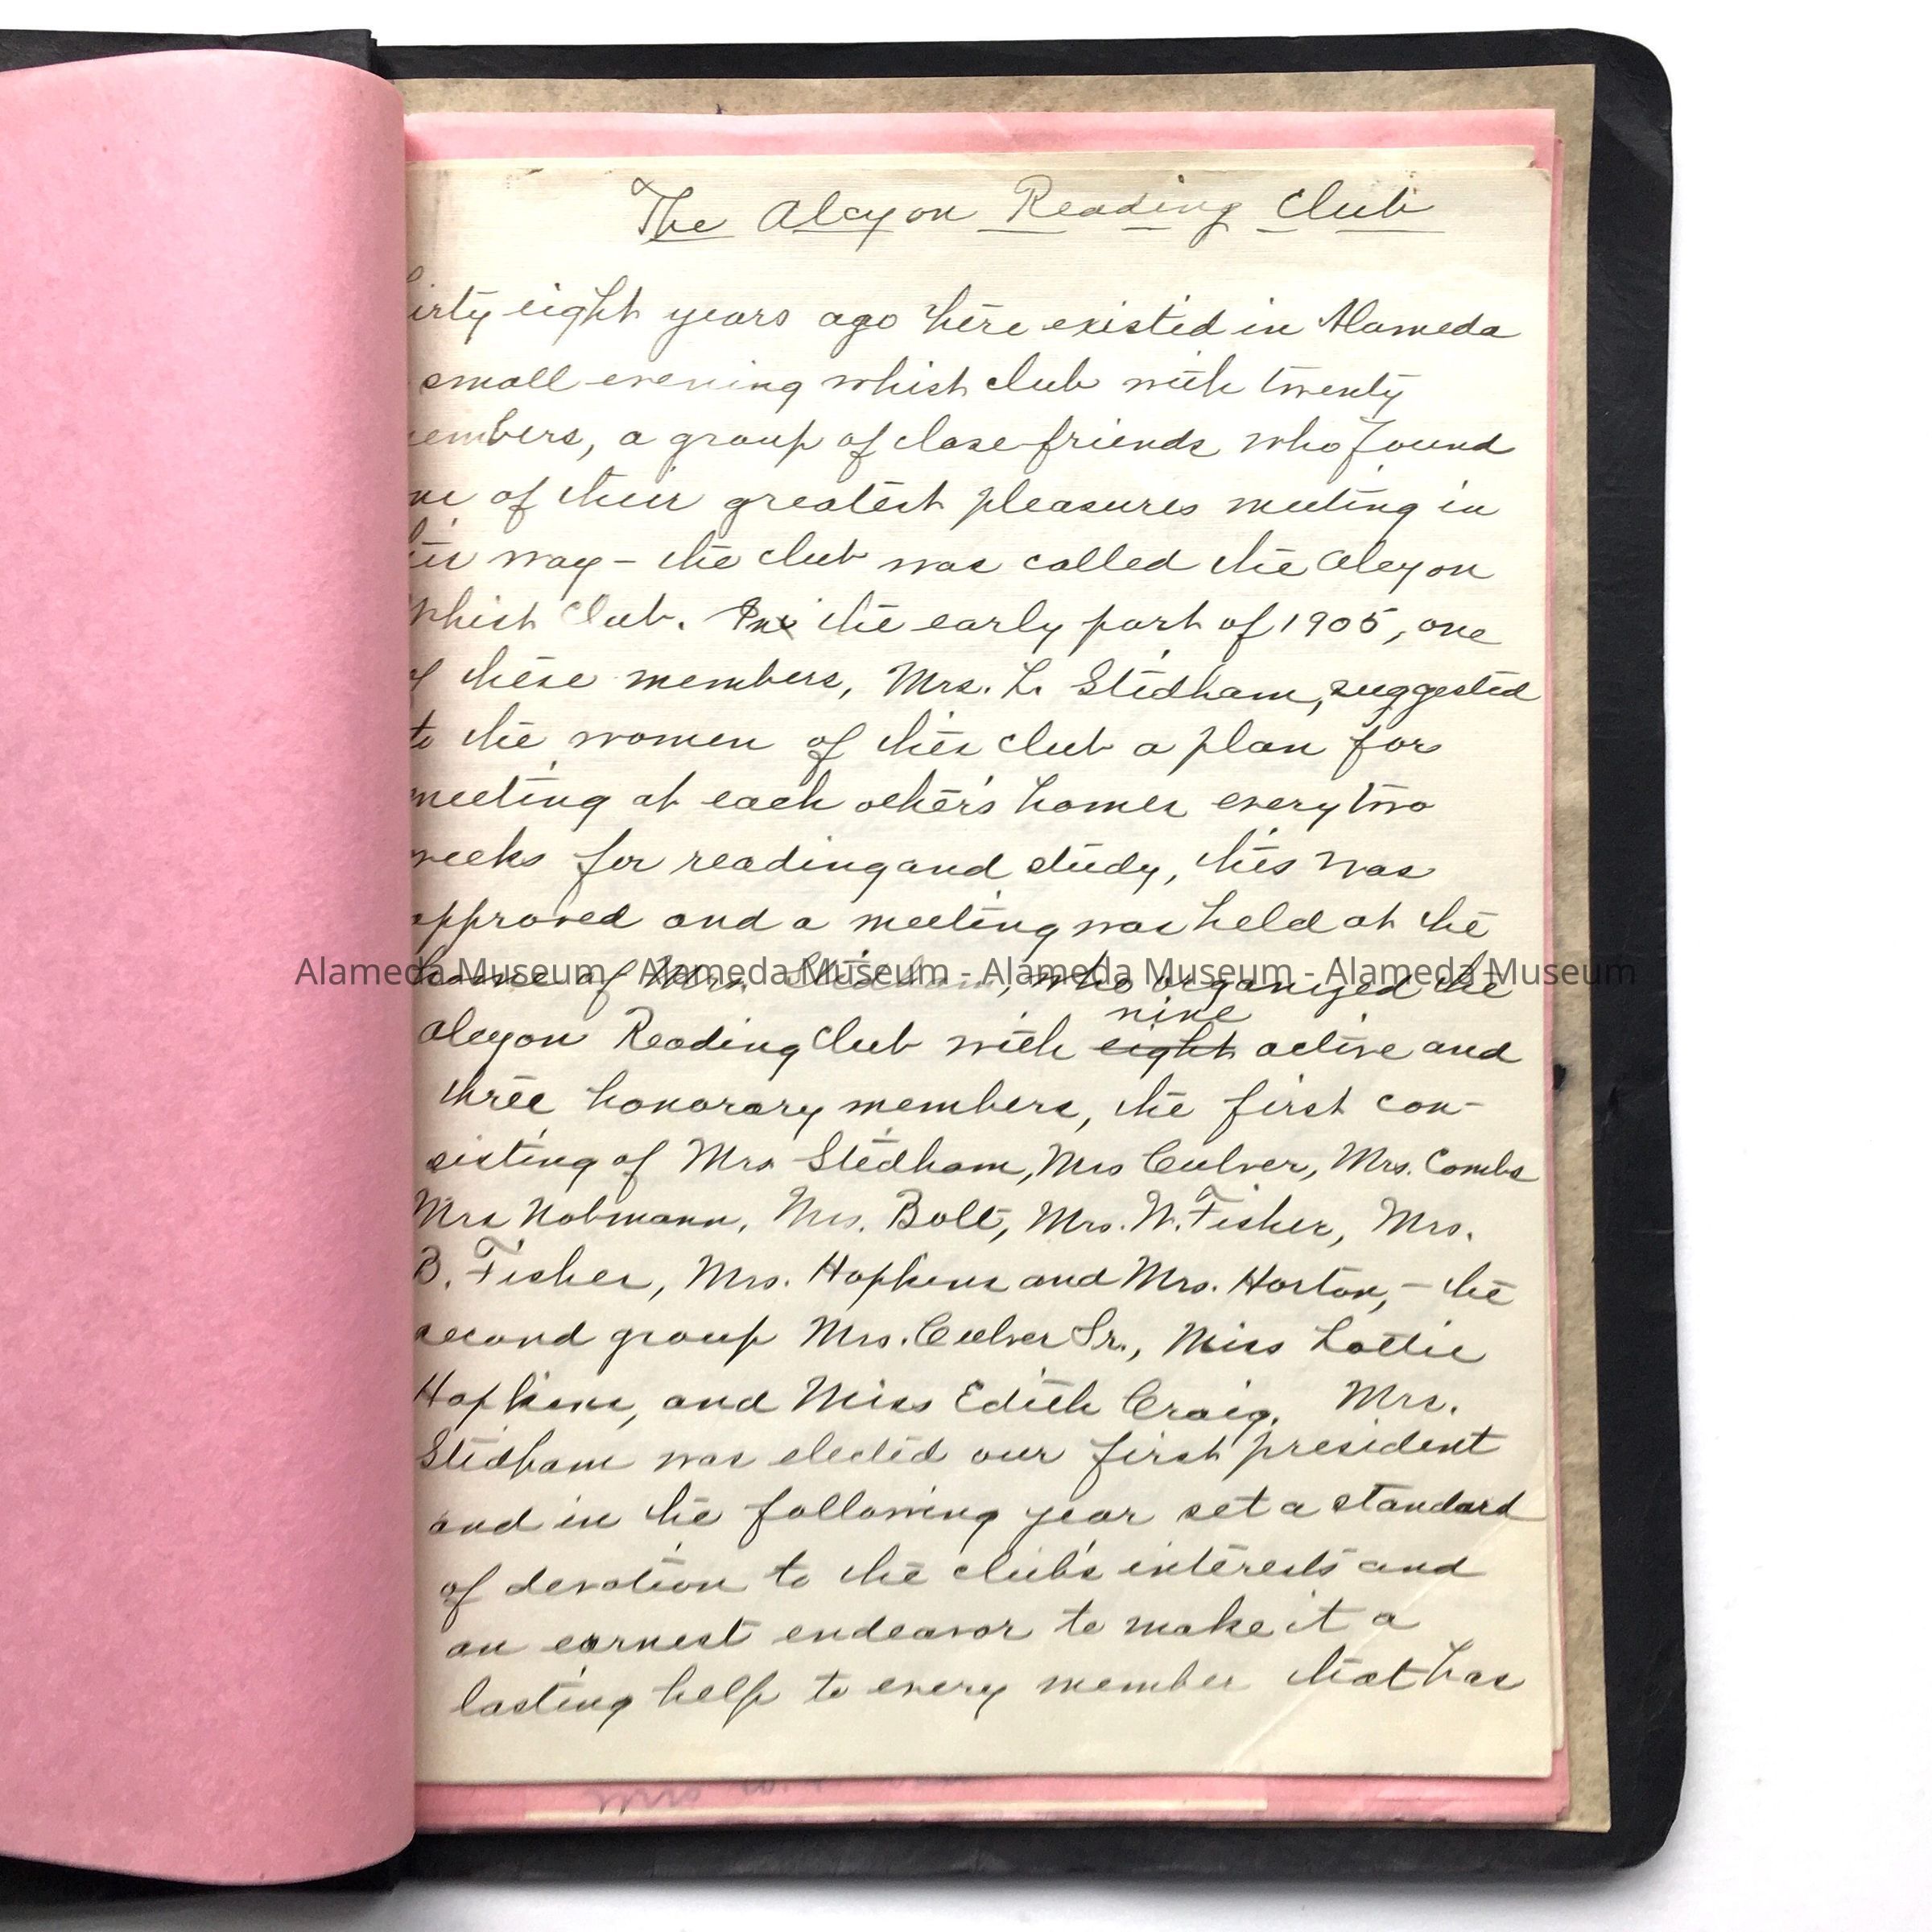 The Alcyon Reading Club
irty eight years ago there existed in Alameda
small evening whist club with twenty
embers, a group of close friends who found
ne of their greatest pleasures meeting in
his way – the club was called the Alcyon
Whist Club. In the early part of 1905, one
of these members, Mrs. L. Stedham, suggested
to the women of this club a plan for
meeting at each other's homes every two
weeks for reading and study, this was
approved and a meeting was held at the
home of Mrs. Stedham, who organized the
Alameda Museum - Alameda Museum - Alameda Museum - Alameda Museum
nine
Alcyon Reading Club with eight active and
three honorary members, the first con-
sisting of Mrs Stedham, Mrs Culver, Mrs. Combs
Mrs Nobmann, Mrs. Bolt, Mrs. W. Fisher, Mrs.
B. Fisher, Mrs. Hopkins and Mrs. Horton, – the
second group Mrs. Culver Sr., Miss Lottie
Hopkins, and Miss Edith Craig. Mrs.
Stedham was elected our first president
and in the following year set a standard
of devotion to the club's interests and
an earnest endeavor to make it a
lasting help to every member that has
Mrs